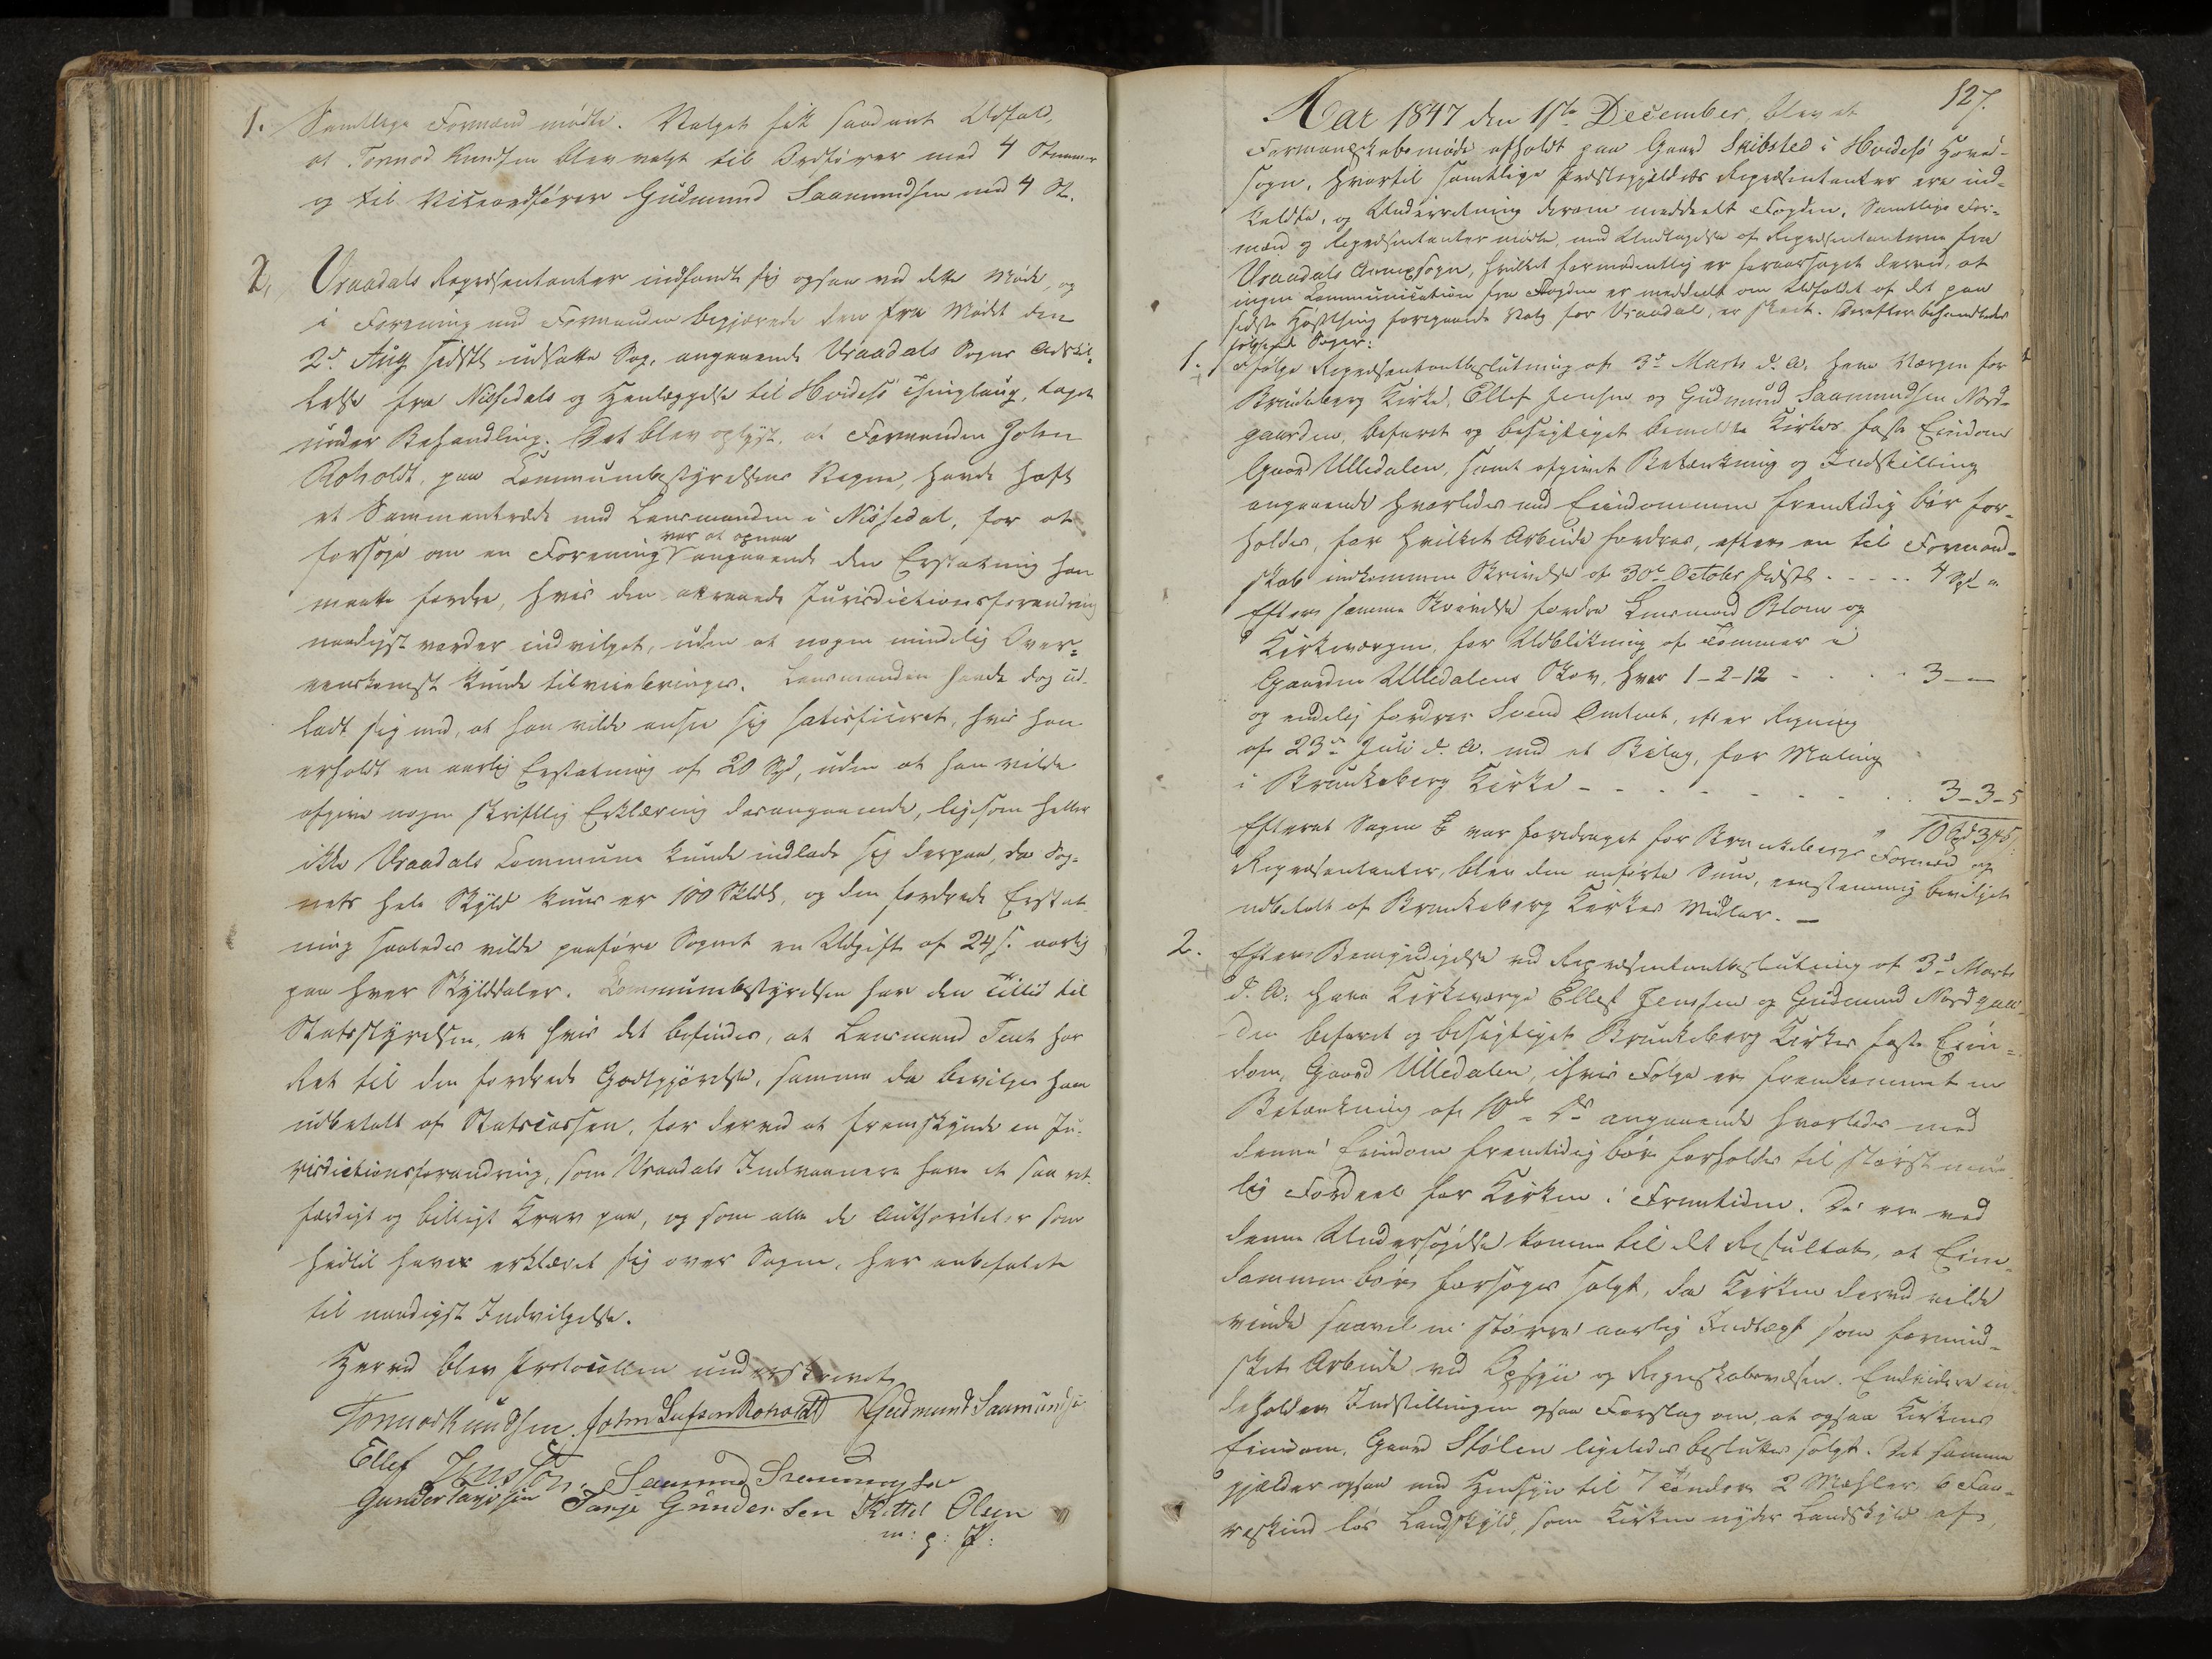 1. Samtlige Formænd mødte. Valget fik saadant Udfald,
at Tormod Knudsen blev valgt til Ordfører med 4 Stemmer
og til Viceordfører Gudmund Saamundsen med 4 St.
2, Vraadals Repræsentanter indfandt sig ogsaa ved dette Møde, og
i Forening med Formænden begjærede den fra Mødet den
2d Aug sidstl. udsatte Sag, angaaende Vraadals Sogns Adskil-
lelse fra Nissedals og Henlæggelse til Hvidesö Thinglaug, taget
under Behandling. Det blev oplyst, at Formanden John
Roholdt, paa Communebestyrelsens Vegne, havde havt
et Sammentræde med Lensmanden i Nissedal, for at
forsøge om en Forening var at opnaa angaaende den Erstatning han
maatte fordre, hvis den attraaede Jurisdictionsforandring
naadigst vorder indvilget, uden at nogen mindelig Over-
eenskomst kunde tilveiebringes. Lensmanden havde dog ud-
ladt sig med, at han vilde ansee sig satisficeret, hvis han
erholdt en aarlig Erstatning af 20 Spd, uden at han vilde
afgive nogen skriftlig Erklæring desangaaende, ligesom heller
ikke Vraadals Commune kunde indlade sig derpaa, da Sog-
nets hele Skyld kuns er 100 Skldl, og den fordrede Erstat-
ning saaledes vilde paaføre Sognet en Udgift af 24 s. aarlig
paa hver Skylddaler. Communebestyrelsen har den Tillid til
Statsstyrelsen, at hvis det befindes, at Lensmand Tent har
Ret til den fordrede Godtgjørelse, samme da bevilges ham
udbetalt af Statscassen, for derved at fremskynde en Ju-
risdictionsforandring, som Vraadals Indvaanere have et saa ret-
færdigt og billigt Krav paa, og som alle de Authoriteter som
hidtil haver erklæret sig over Sagen, har anbefalet
til naadigst Indvilgelse.
Herved blev Protocollen underskrevet
Tormod Knudsen. John Leifsen Roholdt Gudmund Saamundsen
Ellef Jensson. Saamund
Gunder Tarjesen Tarje Gundersen Kittel Olsen
m: p: P:
127.
Aar 1847 den 1ste December, blev et
Formandskabsmøde afholdt paa Gaard Skibsted i Hvidesö Hoved-
sogn, hvortil samtlige Præstegjeldets Repræsentanter ere ind-
kaldte, og Underretning derom meddeelt Fogden. Samtlige For-
mænd og Repræsentanter mødte, med Undtagelse af Repræsentanterne fra
Vraadals Annexsogn, hvilket formodentlig er foraarsaget derved, at
ingen Communication fra Fogden er meddeelt om Udfaldet af det paa
sidste Høstthing foregaaende Valg for Vraadal, er skeet. Derefter behandledes
følgende Sager:
1. Ifølge Repræsentantbeslutning af 3d Marts d. A. have Værgen for
Brunkeberg Kirke, Ellef Jensen og Gudmund Saamundsen Nord-
gaarden, befaret og besigtiget bemeldte Kirkes faste Eiendom
Gaard Ulledalen, samt afgivet Betænkning og Indstilling
angaaende hvorledes med Eiendommen fremtidig bør for-
holdes, for hvilket Arbeide fordres, efter en til Formand-
skab indkommen Skrivelse af 30te October sidstl. - - - - - 4 Spd „
Efter samme Skrivelse fordre Lensmand Blom og
Kirkeværgen, for Udblinkning af Tømmer i
Gaarden Ulledalens Skov, hver 1-2-12 - - - - 3 - —
og endelig fordrer Svend Omtvet, efter Regning
af 23de Juli d. A. med et Bilag, for Maling
i Brunkeberg Kirke - - - - - - - - - 3-3-5
„ 10 Spd 3 5 s.
Efterat Sagen var foredraget for Brunkebergs Formænd og
Repræsentanter, blev den anførte Sum, eenstemmig bevilget
udbetalt af Brunkeberg Kirkes Midler. —
2. Efter Bemyndigelse ved Repræsentantbeslutning af 3d Marts
d. A. have Kirkeværge Ellef Jensen og Gudmund Nordgaar-
den befaret og besigtiget Brunkeberg Kirkes faste Eien-
dom, Gaard Ulledalen, i hvis Følge er fremkommet en
Betænkning af angaaende hvorledes med
denne Eiendom fremtidig bør forholdes til størst mue-
lig Fordeel for Kirken i Fremtiden. De ere ved
denne Undersøgelse komne til det Resultat, at Eien-
dommen bør forsøges solgt, da Kirken derved vilde
vinde saavel en større aarlig Indtægt som formind-
sket Arbeide ved Opsyn og Regnskabsvæsen. Endvidere in-
deholder Indstillingen ogsaa Forslag om, at ogsaa Kirkens
Eiendom, Gaard Stølen ligeledes besluttes solgt. Det samme
gjælder ogsaa med Hensyn til 7 Tønder 2 Mæhler, 6 Faa-
reskind løs Landskyld, som Kirken nyder Landskyld af,